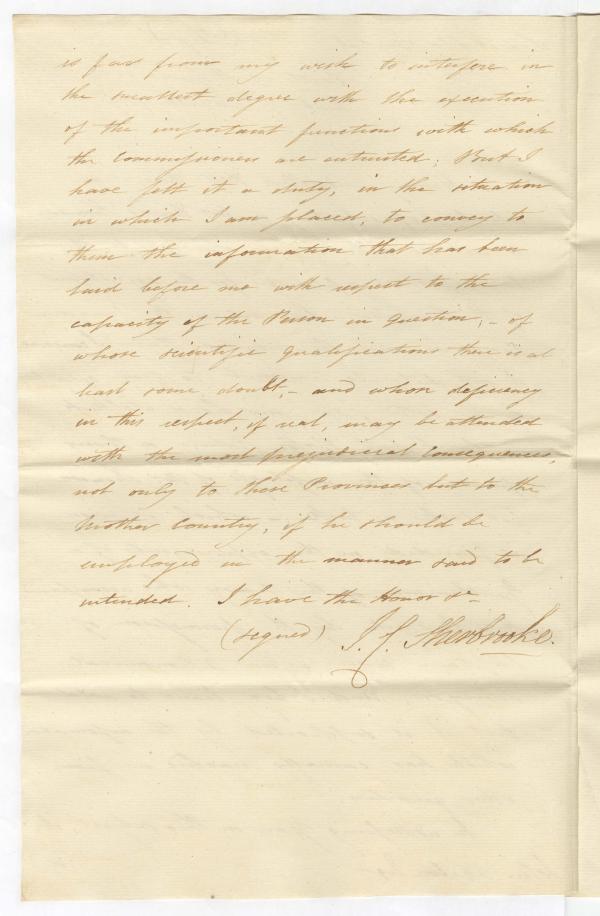 is far from my wish to interfere in
the smallest degree with the execution
of the important functions with which
the Commissioners are intrusted; But I
have felt it a duty, in the situation
in which I am placed, to convey to
them the information that has been
laid before me with respect to the
capacity of the Person in question, - of
whose scientific qualifications there is at
least some doubt, - and whose deficiency
in this respect, if real, may be attended
with the most prejudicial Consequences,
not only to these Provinces but to the
Mother Country, if he should be
employed in the manner said to be
intended. I have the Honor &c
(signed) J. C. Sherbrooke.